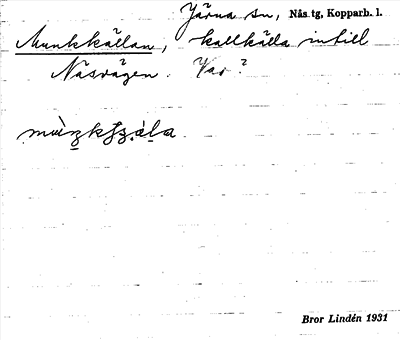 Järna sn, Nås tg, Kopparb. l.
Munkkällan, kallkälla intill
Näsvägen. Var?
Bror Lindén 1931